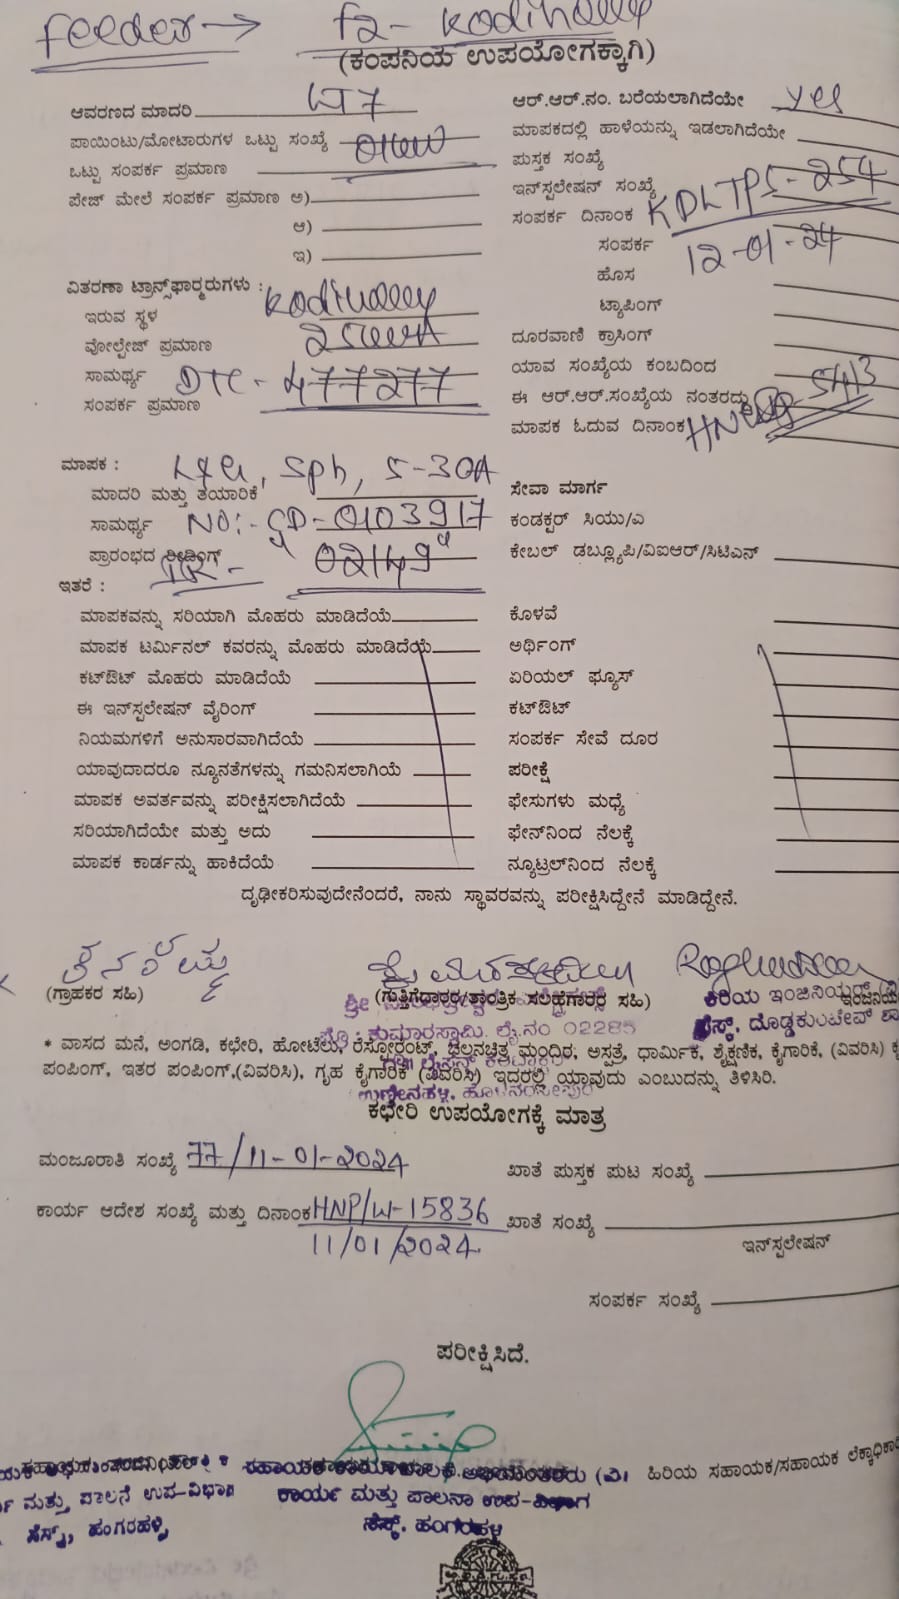 Feeder → f2- Kodihally
(ಕಂಪನಿಯ ಉಪಯೋಗಕ್ಕಾಗಿ)
ಆವರಣದ ಮಾದರಿ LT7
ಪಾಯಿಂಟು/ಮೋಟಾರುಗಳ ಒಟ್ಟು ಸಂಖ್ಯೆ
ಒಟ್ಟು ಸಂಪರ್ಕ ಪ್ರಮಾಣ
ಪೇಜ್ ಮೇಲೆ ಸಂಪರ್ಕ ಪ್ರಮಾಣ ಅ)
ಆ)
ಇ)
ವಿತರಣಾ ಟ್ರಾನ್ಸ್‌ಫಾರ್‍ಮರುಗಳು :
ಇರುವ ಸ್ಥಳ Kodihally
ವೋಲ್ಟೇಜ್ ಪ್ರಮಾಣ
ಸಾಮರ್ಥ್ಯ DTC - 477277
ಸಂಪರ್ಕ ಪ್ರಮಾಣ
ಆರ್.ಆರ್.ನಂ. ಬರೆಯಲಾಗಿದೆಯೇ yes
ಮಾಪಕದಲ್ಲಿ ಹಾಳೆಯನ್ನು ಇಡಲಾಗಿದೆಯೇ
ಪುಸ್ತಕ ಸಂಖ್ಯೆ
ಇನ್‌ಸ್ಟಲೇಷನ್ ಸಂಖ್ಯೆ KDLTPS-254
ಸಂಪರ್ಕ ದಿನಾಂಕ
ಸಂಪರ್ಕ 12-01-24
ಹೊಸ
ಟ್ಯಾಪಿಂಗ್
ದೂರವಾಣಿ ಕ್ರಾಸಿಂಗ್
ಯಾವ ಸಂಖ್ಯೆಯ ಕಂಬದಿಂದ
ಈ ಆರ್.ಆರ್.ಸಂಖ್ಯೆಯ ನಂತರದ್ದು
ಮಾಪಕ ಓದುವ ದಿನಾಂಕ 5413
ಮಾಪಕ : L&G, Sph, 5-30A
ಮಾದರಿ ಮತ್ತು ತಯಾರಿಕೆ
ಸಾಮರ್ಥ್ಯ NO:- 0103917
ಪ್ರಾರಂಭದ ರೀಡಿಂಗ್ 02149
ಇತರೆ : IR -
ಮಾಪಕವನ್ನು ಸರಿಯಾಗಿ ಮೊಹರು ಮಾಡಿದೆಯೆ
ಮಾಪಕ ಟರ್ಮಿನಲ್ ಕವರನ್ನು ಮೊಹರು ಮಾಡಿದೆಯೆ
ಕಟ್‌ಔಟ್ ಮೊಹರು ಮಾಡಿದೆಯೆ
ಈ ಇನ್‌ಸ್ಪಲೇಷನ್ ವೈರಿಂಗ್
ನಿಯಮಗಳಿಗೆ ಅನುಸಾರವಾಗಿದೆಯೆ
ಯಾವುದಾದರೂ ನ್ಯೂನತೆಗಳನ್ನು ಗಮನಿಸಲಾಗಿಯೆ
ಮಾಪಕ ಅವರ್ತವನ್ನು ಪರೀಕ್ಷಿಸಲಾಗಿದೆಯೆ
ಸರಿಯಾಗಿದೆಯೇ ಮತ್ತು ಅದು
ಮಾಪಕ ಕಾರ್ಡನ್ನು ಹಾಕಿದೆಯೆ
ಸೇವಾ ಮಾರ್ಗ
ಕಂಡಕ್ಟರ್ ಸಿಯು/ಎ
ಕೇಬಲ್ ಡಬ್ಲ್ಯೂಪಿ/ವಿಐಆರ್/ಸಿಟಿಎನ್
ಕೊಳವೆ
ಅರ್ಥಿಂಗ್
ಏರಿಯಲ್ ಫ್ಯೂಸ್
ಕಟ್‌ಔಟ್
ಸಂಪರ್ಕ ಸೇವೆ ದೂರ
ಪರೀಕ್ಷೆ
ಫೇಸುಗಳು ಮಧ್ಯೆ
ಫೇಸ್‌ನಿಂದ ನೆಲಕ್ಕೆ
ನ್ಯೂಟ್ರಲ್‌ನಿಂದ ನೆಲಕ್ಕೆ
ದೃಢೀಕರಿಸುವುದೇನೆಂದರೆ, ನಾನು ಸ್ಥಾವರವನ್ನು ಪರೀಕ್ಷಿಸಿದ್ದೇನೆ ಮಾಡಿದ್ದೇನೆ.
(ಗ್ರಾಹಕರ ಸಹಿ) (ಗುತ್ತಿಗೆದಾರರ/ತಾಂತ್ರಿಕ ಸಲಹೆಗಾರರ ಸಹಿ) ಕಿರಿಯ ಇಂಜಿನಿಯರ್
ಕುಮಾರಸ್ವಾಮಿ. ಲೈ.ನಂ 02285 ಸೆಸ್ಕ್, ದೊಡ್ಡಕುಂಟೇವ್
* ವಾಸದ ಮನೆ, ಅಂಗಡಿ, ಕಛೇರಿ, ಹೋಟೆಲು, ರೆಸ್ಟೋರೆಂಟ್, ಚಲನಚಿತ್ರ ಮಂದಿರ, ಅಸ್ಪತ್ರೆ, ಧಾರ್ಮಿಕ, ಶೈಕ್ಷಣಿಕ, ಕೈಗಾರಿಕೆ, (ವಿವರಿಸಿ)
ಪಂಪಿಂಗ್, ಇತರ ಪಂಪಿಂಗ್,(ವಿವರಿಸಿ), ಗೃಹ ಕೈಗಾರಿಕೆ (ವಿವರಿಸಿ) ಇದರಲ್ಲಿ ಯಾವುದು ಎಂಬುದನ್ನು ತಿಳಿಸಿರಿ.
ಕಛೇರಿ ಉಪಯೋಗಕ್ಕೆ ಮಾತ್ರ
ಮಂಜೂರಾತಿ ಸಂಖ್ಯೆ 77/11-01-2024 ಖಾತೆ ಪುಸ್ತಕ ಪುಟ ಸಂಖ್ಯೆ
ಕಾರ್ಯ ಆದೇಶ ಸಂಖ್ಯೆ ಮತ್ತು ದಿನಾಂಕ HNP/W-15836 ಖಾತೆ ಸಂಖ್ಯೆ
11/01/2024 ಇನ್‌ಸ್ಪಲೇಷನ್
ಸಂಪರ್ಕ ಸಂಖ್ಯೆ
ಪರೀಕ್ಷಿಸಿದೆ.
ಸಹಾಯಕ ಕಾರ್ಯಪಾಲಕ ಅಭಿಯಂತರರು (ವಿ) ಹಿರಿಯ ಸಹಾಯಕ/ಸಹಾಯಕ
ಮತ್ತು ಪಾಲನೆ ಉಪ-ವಿಭಾಗ ಕಾರ್ಯ ಮತ್ತು ಪಾಲನಾ ಉಪ-ವಿಭಾಗ
ಸೆಸ್ಕ್, ಹಂಗರಹಳ್ಳಿ ಸೆಸ್ಕ್, ಹಂಗರಹಳ್ಳಿ